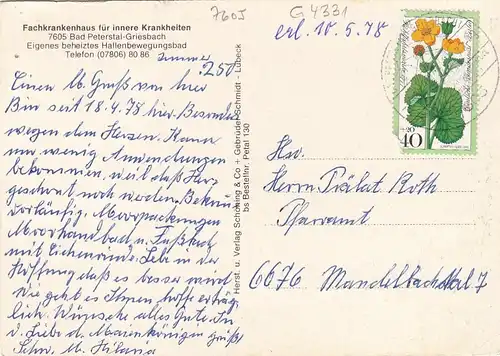 Fachkrankenhaus für innere Krankheiten
7605 Bad Peterstal-Griesbach
Eigenes beheiztes Hallenbewegungsbad
Telefon (07806) 80 86
7605
G 4331
erl. 10.5.78
Zimmer 250
Einen lb. Gruß von hier
Bin seit 18.4.78 hier. Besonders
wegen dem Herzen. Kann
nur wenig Anwendungen
bekommen, weil das Herz
geschont noch werden. Bekomme
vorläufig, Moorpackungen
Moorhandbad u. Fußbad
mit Eichenrinde. Lebe in der
Hoffnung daß es besser wird
Wie geht es Ihnen, hoffe erträg-
lich. Wünsche alles Gute. In
d. Liebe d. Maienkönigin grüßt
Schw. M. Hilaria
Herst. u. Verlag Schöning & Co + Gebrüder Schmidt - Lübeck
bs Bestellnr. Petal 130
+20
40
Hw.
Herrn Prälat Roth
Pfarramt
6676 Mandelbachtal 7